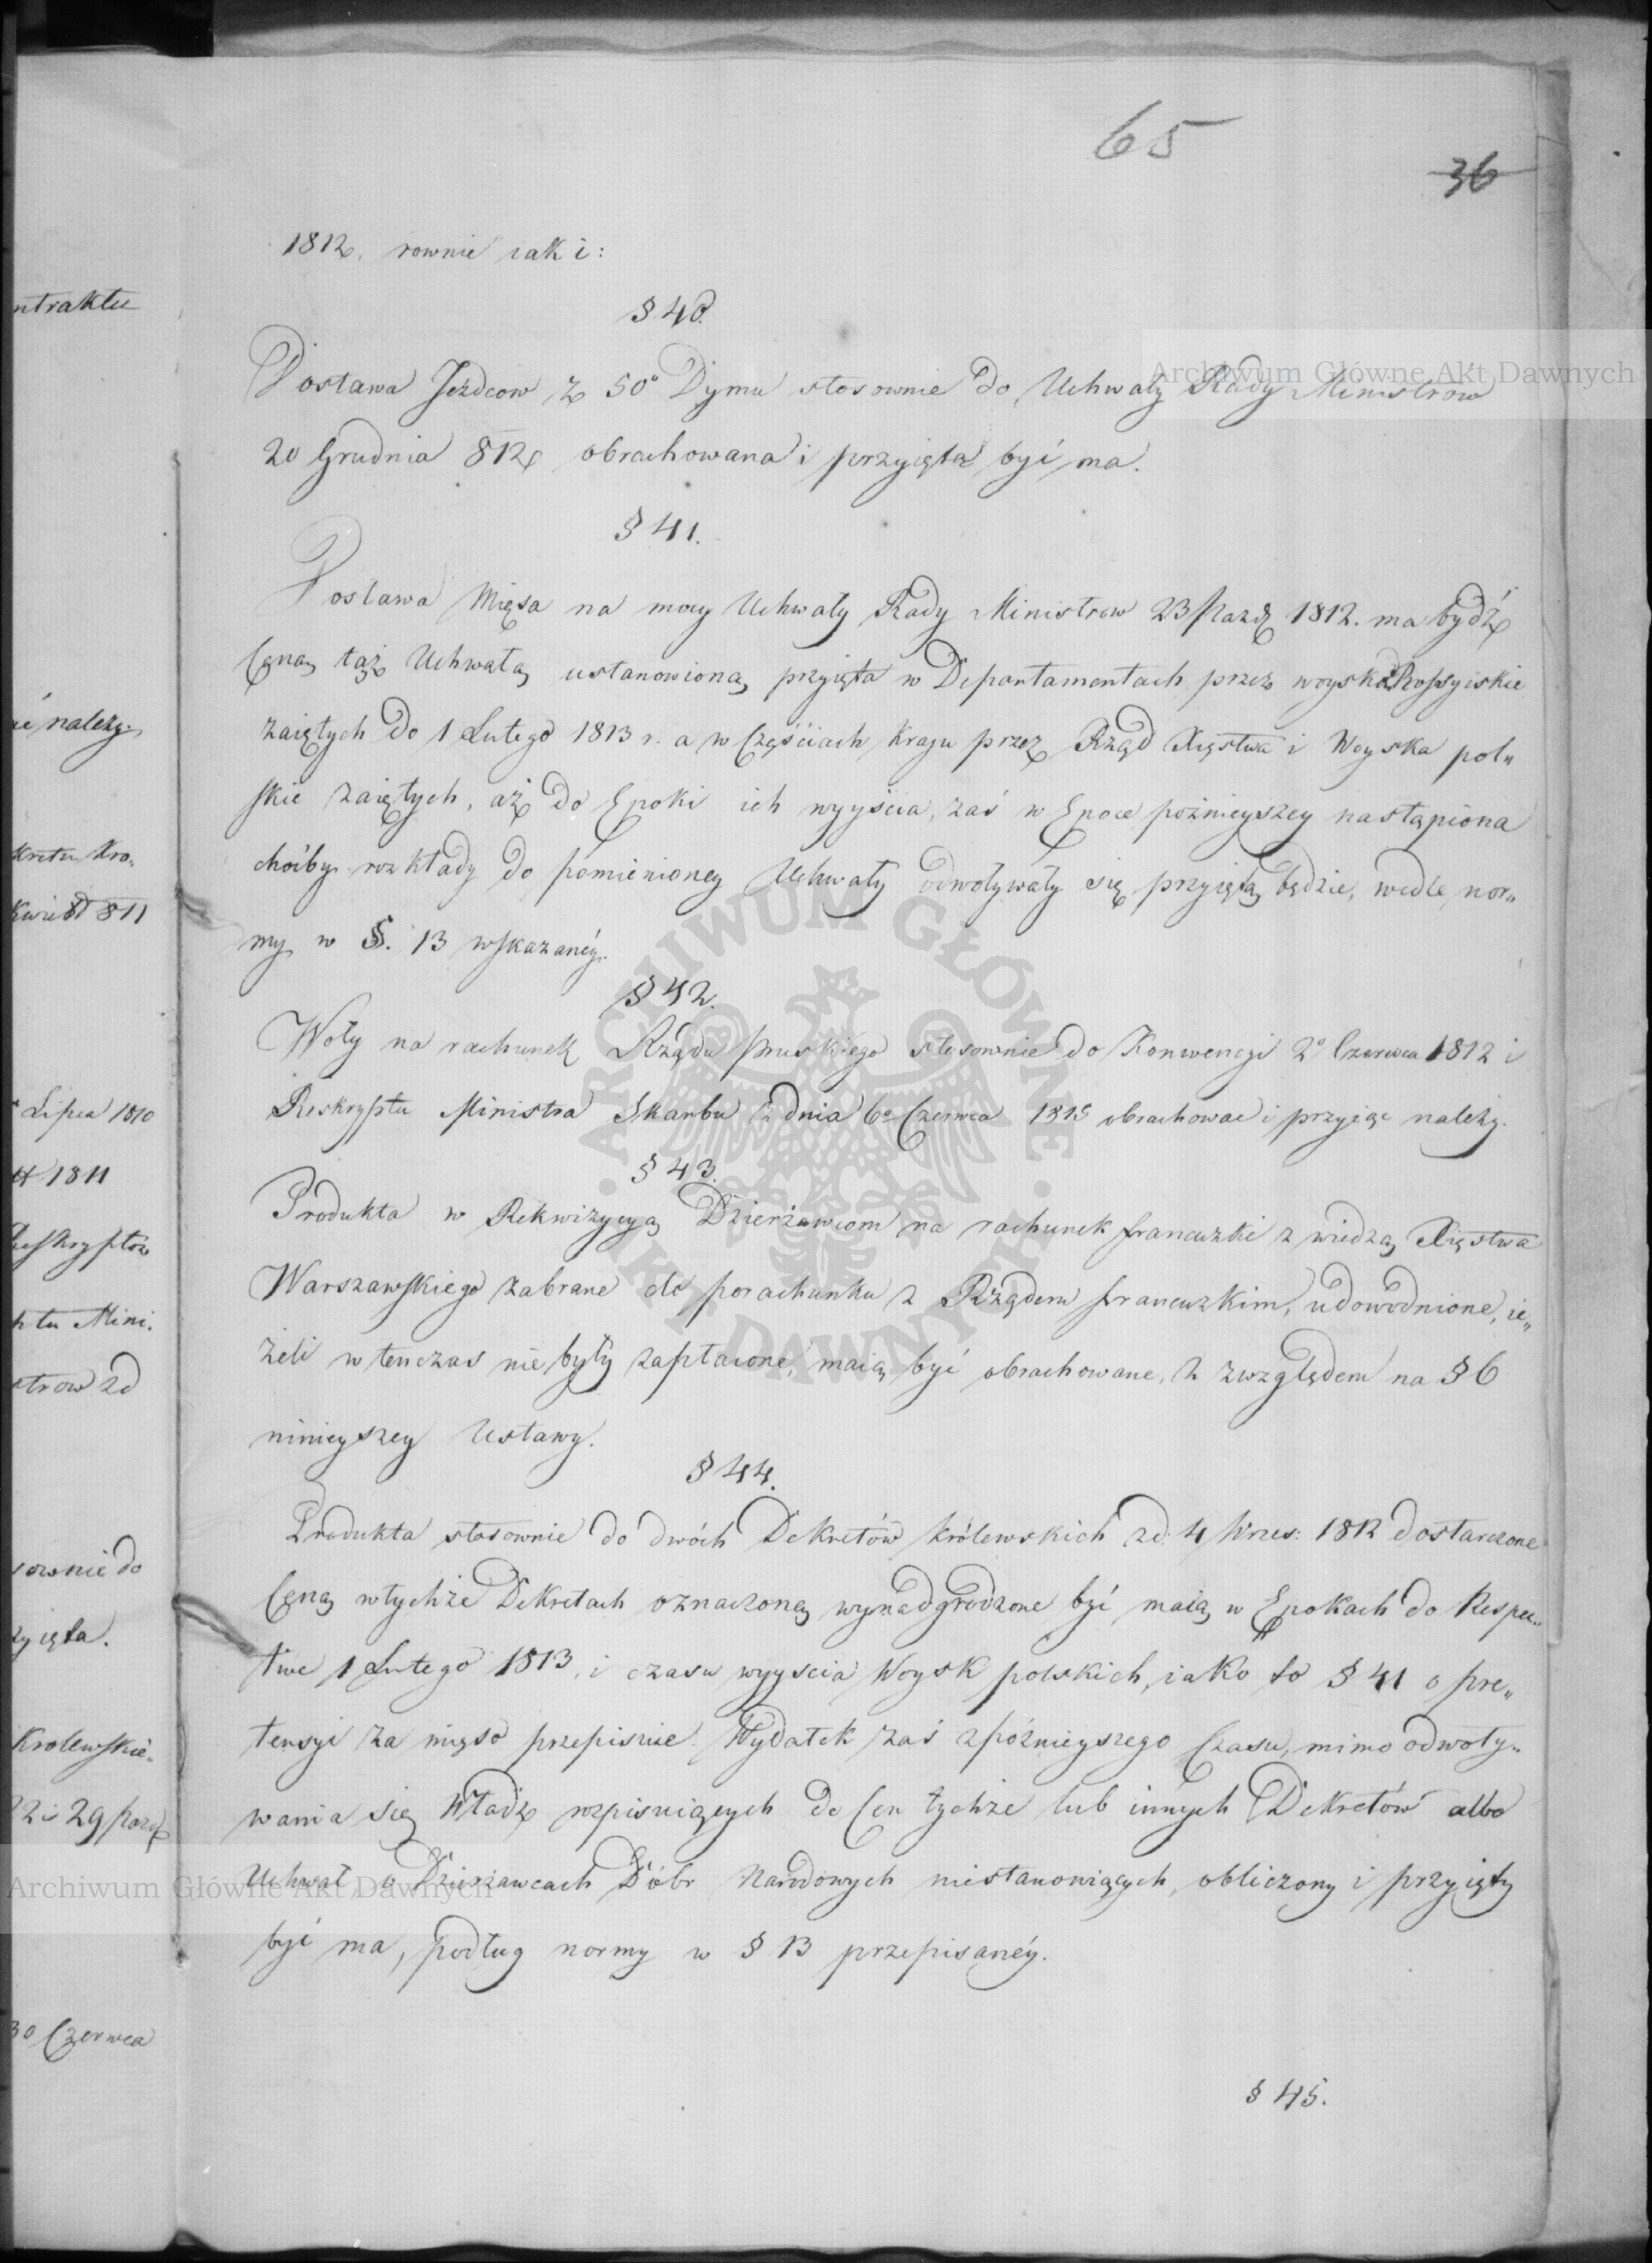 65
36
1812. rownie iak i:
§ 40.
Dostawa Jezdcow z 50º Dymu stosownie do Uchwały Rady Ministrow
20 Grudnia 812 obrachowana i przyięta być ma.
§ 41.
Dostawa Mięsa na mocy Uchwały Rady Ministrow 23 Pazdz 1812. ma bydź
Ceną tąż Uchwałą ustanowioną przyięta w Departamentach przez woyska Rossyiskie
zaiętych do 1 Lutego 1813 r. a w Częściach Kraju przez Rząd Xięstwa i Woyska pol„
skie zaiętych, aż do Epoki ich wyyścia, zaś w Epoce poźnieyszey nastąpiona
choćby rozkłady do pomienioney Uchwały odwoływały się przyiętą będzie, wedle nor„
my w §. 13 wskazanéy.
§ 42.
Woły na rachunek Rządu pruskiego stosownie do Konwencyi 2º Czerwca 1812 i
Reskryptu Ministra Skarbu z dnia 6º Czerwca 1815 obrachowac i przyiąc należy.
§ 43.
Produkta w Rekwizycyą Dzierżawcom na rachunek francuzki z wiedzą Xięstwa
Warszawskiego zabrane do porachunku z Rządem francuzkim, udowodnione, ie„
żeli wtenczas nie były zapłacone, maią być obrachowane, z zwzględem na § 6
ninieyszey Ustawy.
§ 44.
Produkta stosownie do dwóch Dekretów królewskich z d: 4 Wrzes: 1812 dostarczone
Ceną wtychże Dekretach oznaczoną wynadgrodzone być maią w Epokach do Respec„
tive 1 Lutego 1813, i czasu wyyscia Woysk polskich, iako to § 41 o pre„
tensyi za mięso przepisuie. Wydatek zaś zpóźnieyszego Czasu, mimo odwoły„
wania się Władz rozpisuiących do Cen tychże lub innych Dekretów albo
Uchwał, o Dzierżawcach Dóbr Narodowych niestanowiących, obliczony i przyięty
być ma, podług normy w § 13 przepisanéy.
§ 45.
ntraktu
należy
kretu Kro„
Kwiet 811
Lipca 1810
1811
Reskryptow
ptu Mini.
strow zd
sownie do
zyięta.
Krolewskie
22 i 29 pazdz
30 Czerwca
Archiwum Główne Akt Dawnych
ARCHIWUM GŁÓWNE · AKT DAWNYCH ·
Archiwum Główne Akt Dawnych